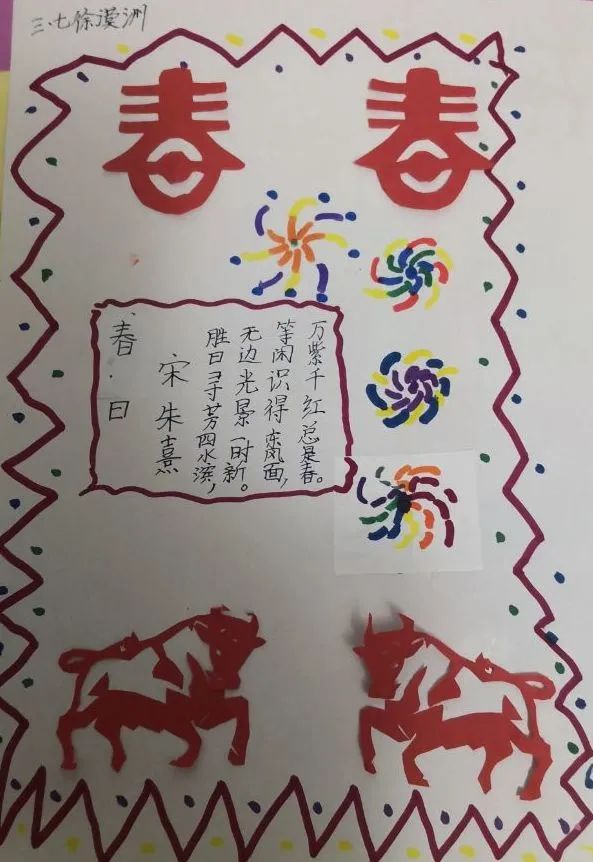 三.七徐洲
春
春
春·日
宋朱熹
胜日寻芳四水滨，
无边光景一时新。
等闲识得东风面，
万紫千红总是春。